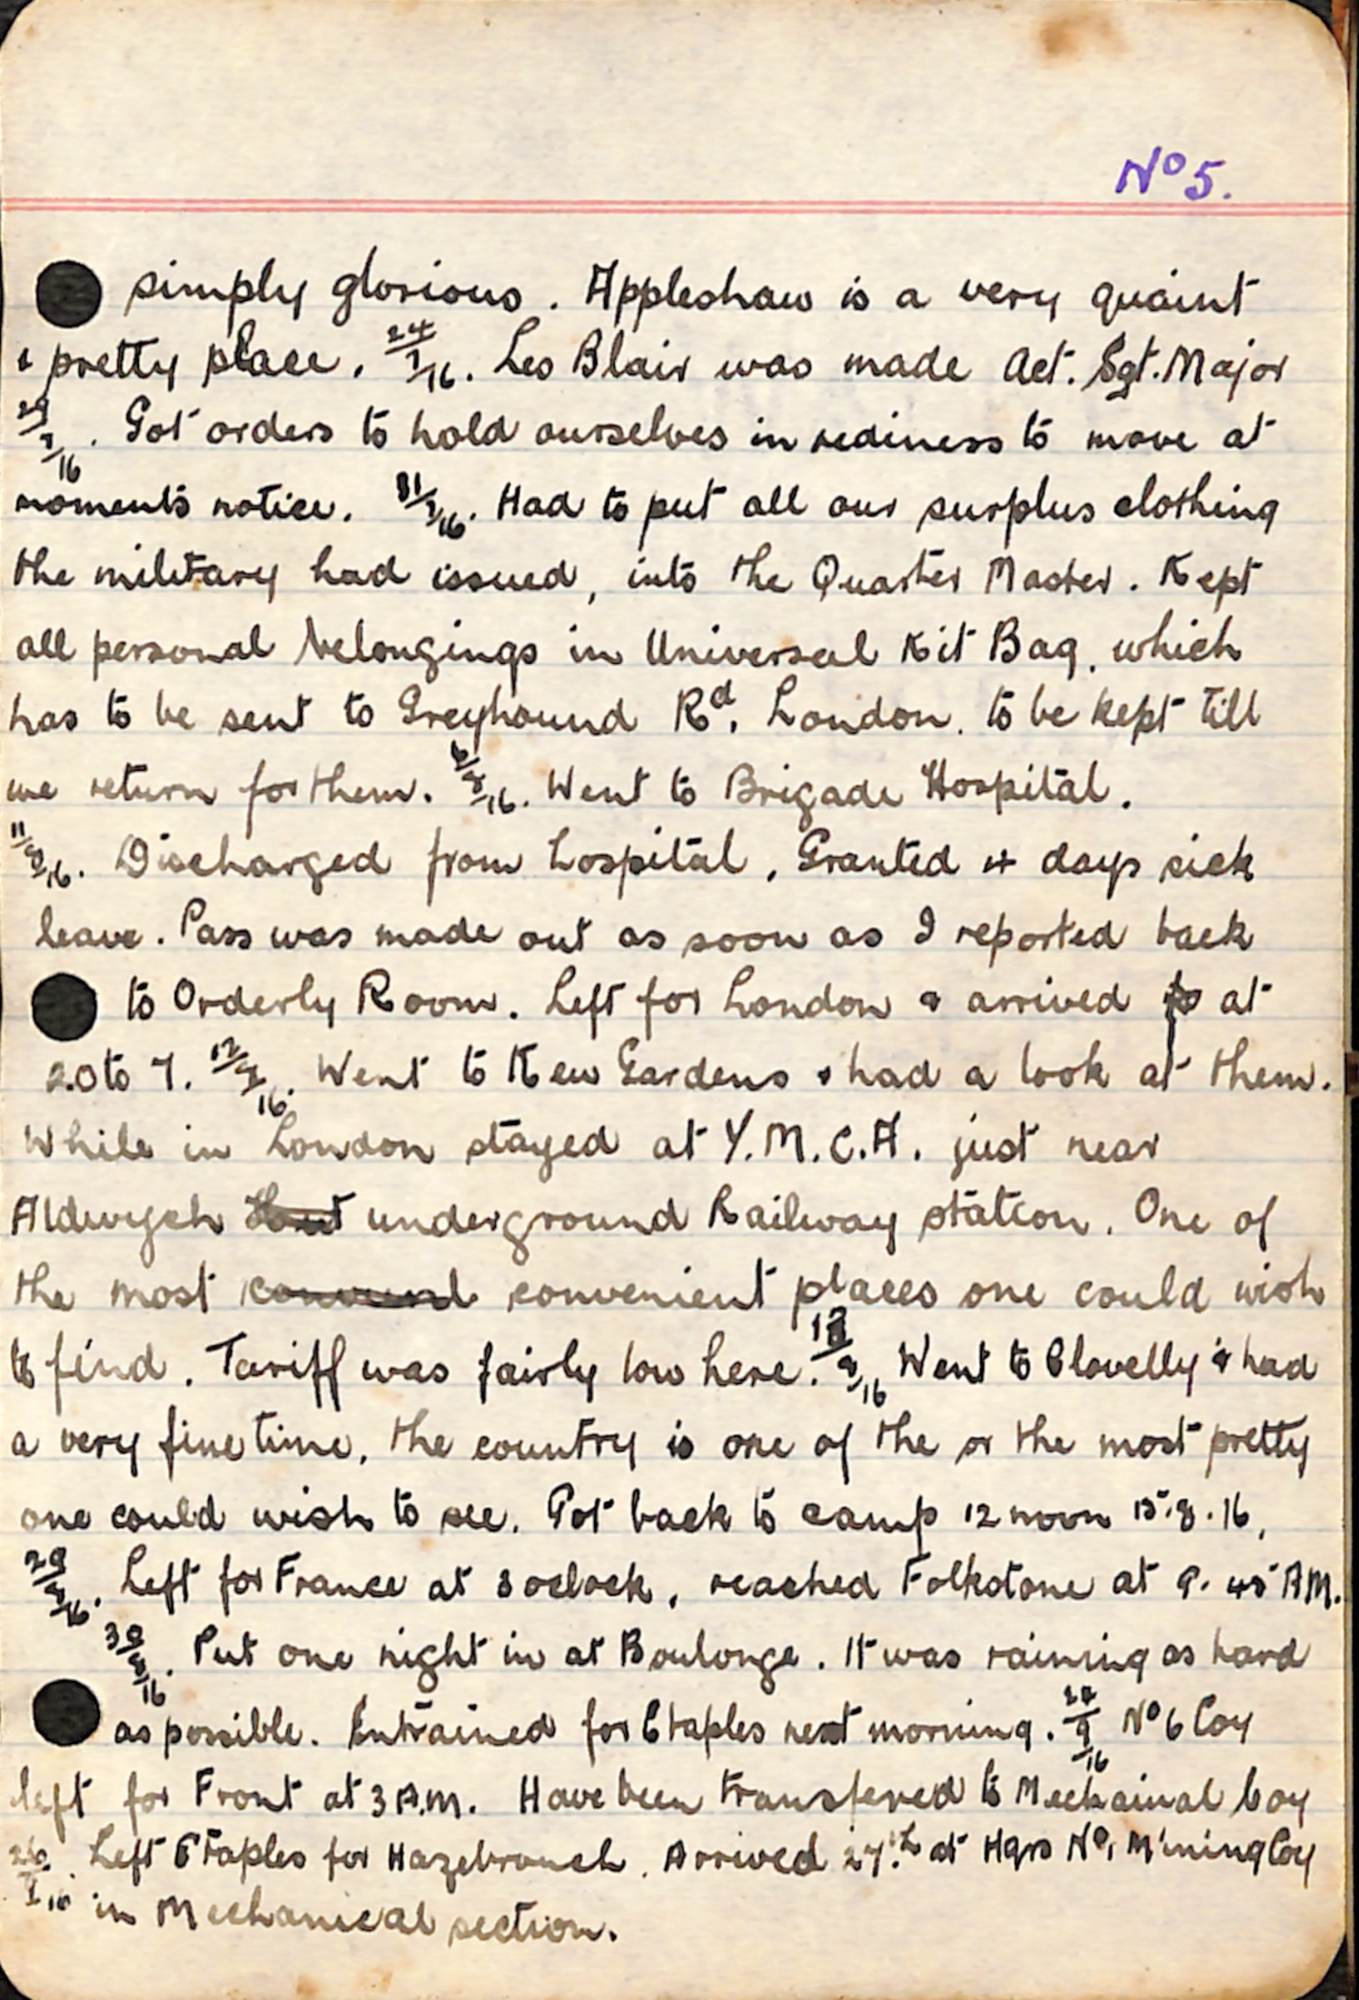 No 5.
simply glorious. Appleshaw is a very quaint
& pretty place. 24/7/16. Les Blair was made Act. Sgt. Major
29/7/16. Got orders to hold ourselves in rediness to move at
moments notice. 31/7/16. Had to put all our surplus clothing
the military had issued, into the Quarter Master. Kept
all personal belongings in Universal Kit Bag. which
has to be sent to Greyhound Rd, London. to be kept till
we return for them. 6/8/16. Went to Brigade Hospital.
11/8/16. Discharged from hospital. Granted 4 days sick
leave. Pass was made out as soon as I reported back
to Orderly Room. Left for London & arrived to at
20 to 7. 12/8/16. Went to Kew Gardens & had a look at them.
While in London stayed at Y.M.C.A. just near
Aldwych underground Railway station. One of
the most convenient places one could wish
to find. Tariff was fairly low here. 13/8/16 Went to Clovelly & had
a very fine time, the country is one of the or the most pretty
one could wish to see. Got back to camp 12 noon 15.8.16,
29/8/16. Left for France at 3 oclock, reached Folkstone at 9.45 AM.
30/8/16. Put one night in at Boulonge. It was raining as hard
as possible. Entrained for Etaples next morning. 24/9/16 No 6 Coy
left for Front at 3 A.M. Have been transferred to Mechainal Coy
26/9/16. Left Etaples for Hazebrouch. Arrived 27th at Hqrs No 1 Mining Coy
in Mechanical section.